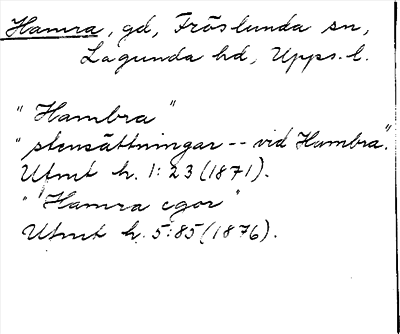 Hamra, gd, Fröslunda sn,
Lagunda hd, Upps. l.
"Hambra"
"stensättningar -- vid Hambra".
Utmt h. 1:23 (1871).
"Hamra egor"
Utmt h. 5:85 (1876).